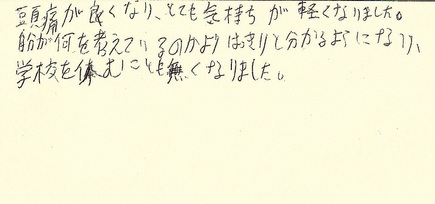 頭痛が良くなり、とても気持ちが軽くなりました。
自分が何を考えているのかよりはっきりと分かるようになり、
学校を休むことも無くなりました。